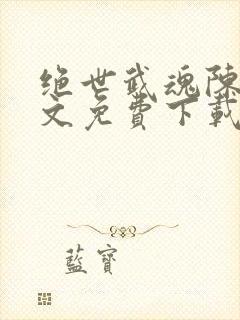 绝世武魂陈
文免费下载
藍寶